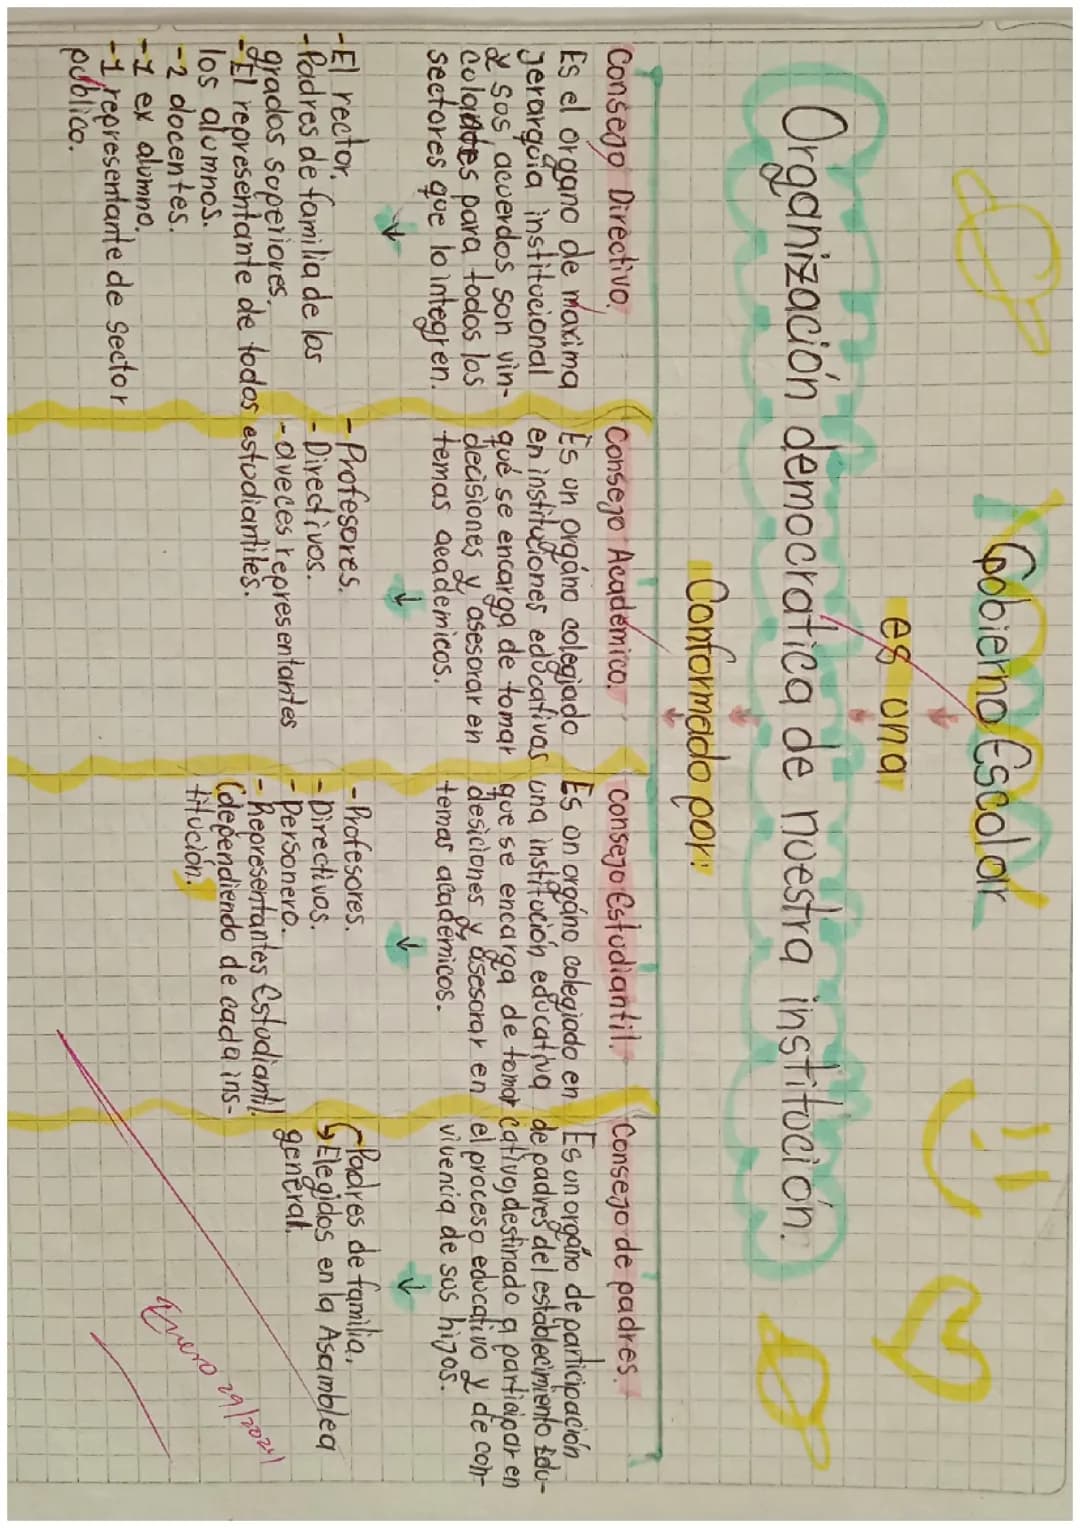 Gobierno Escolar
es una
Organización democratica de nuestra institución.
Conformado por:
Consejo Directivo.
Es el organo de maxima
jerarquia institucional
y sus acuerdos son vin-
culantes para todos los
sectores que lo integren.
-El rector.
-Padres de familia de los
grados superiores.
-El representante de todos estudiantiles.
los alumnos.
-2 docentes.
-1 ex alumno.
-1 representante de sector
publico.
Consejo Académico.
Es un orgáno colegiado
en instituciones educativas
qué se encarga de tomar
decisiones y asesorar en
temas academicos.
-Profesores.
-Directivos.
-aveces representantes
consejo Estudiantil.
Es un orgáno colegiado en
una institución educativa
que se encarga de tomar
desiciones y asesorar en
temas académicos.
-Profesores.
-Directivos.
-Personero.
-Representantes Estudiantil.
(dependiendo de cada ins-
titución.)
Consejo de padres.
Es un orgáno de participación
de padres del establecimiento Edu-
cativo, destinado a participar en
el proceso educativo y de con-
vivencia de sus hijos.
Padres de familia.
Elegidos en la Asamblea
general.
Enero 29/2024